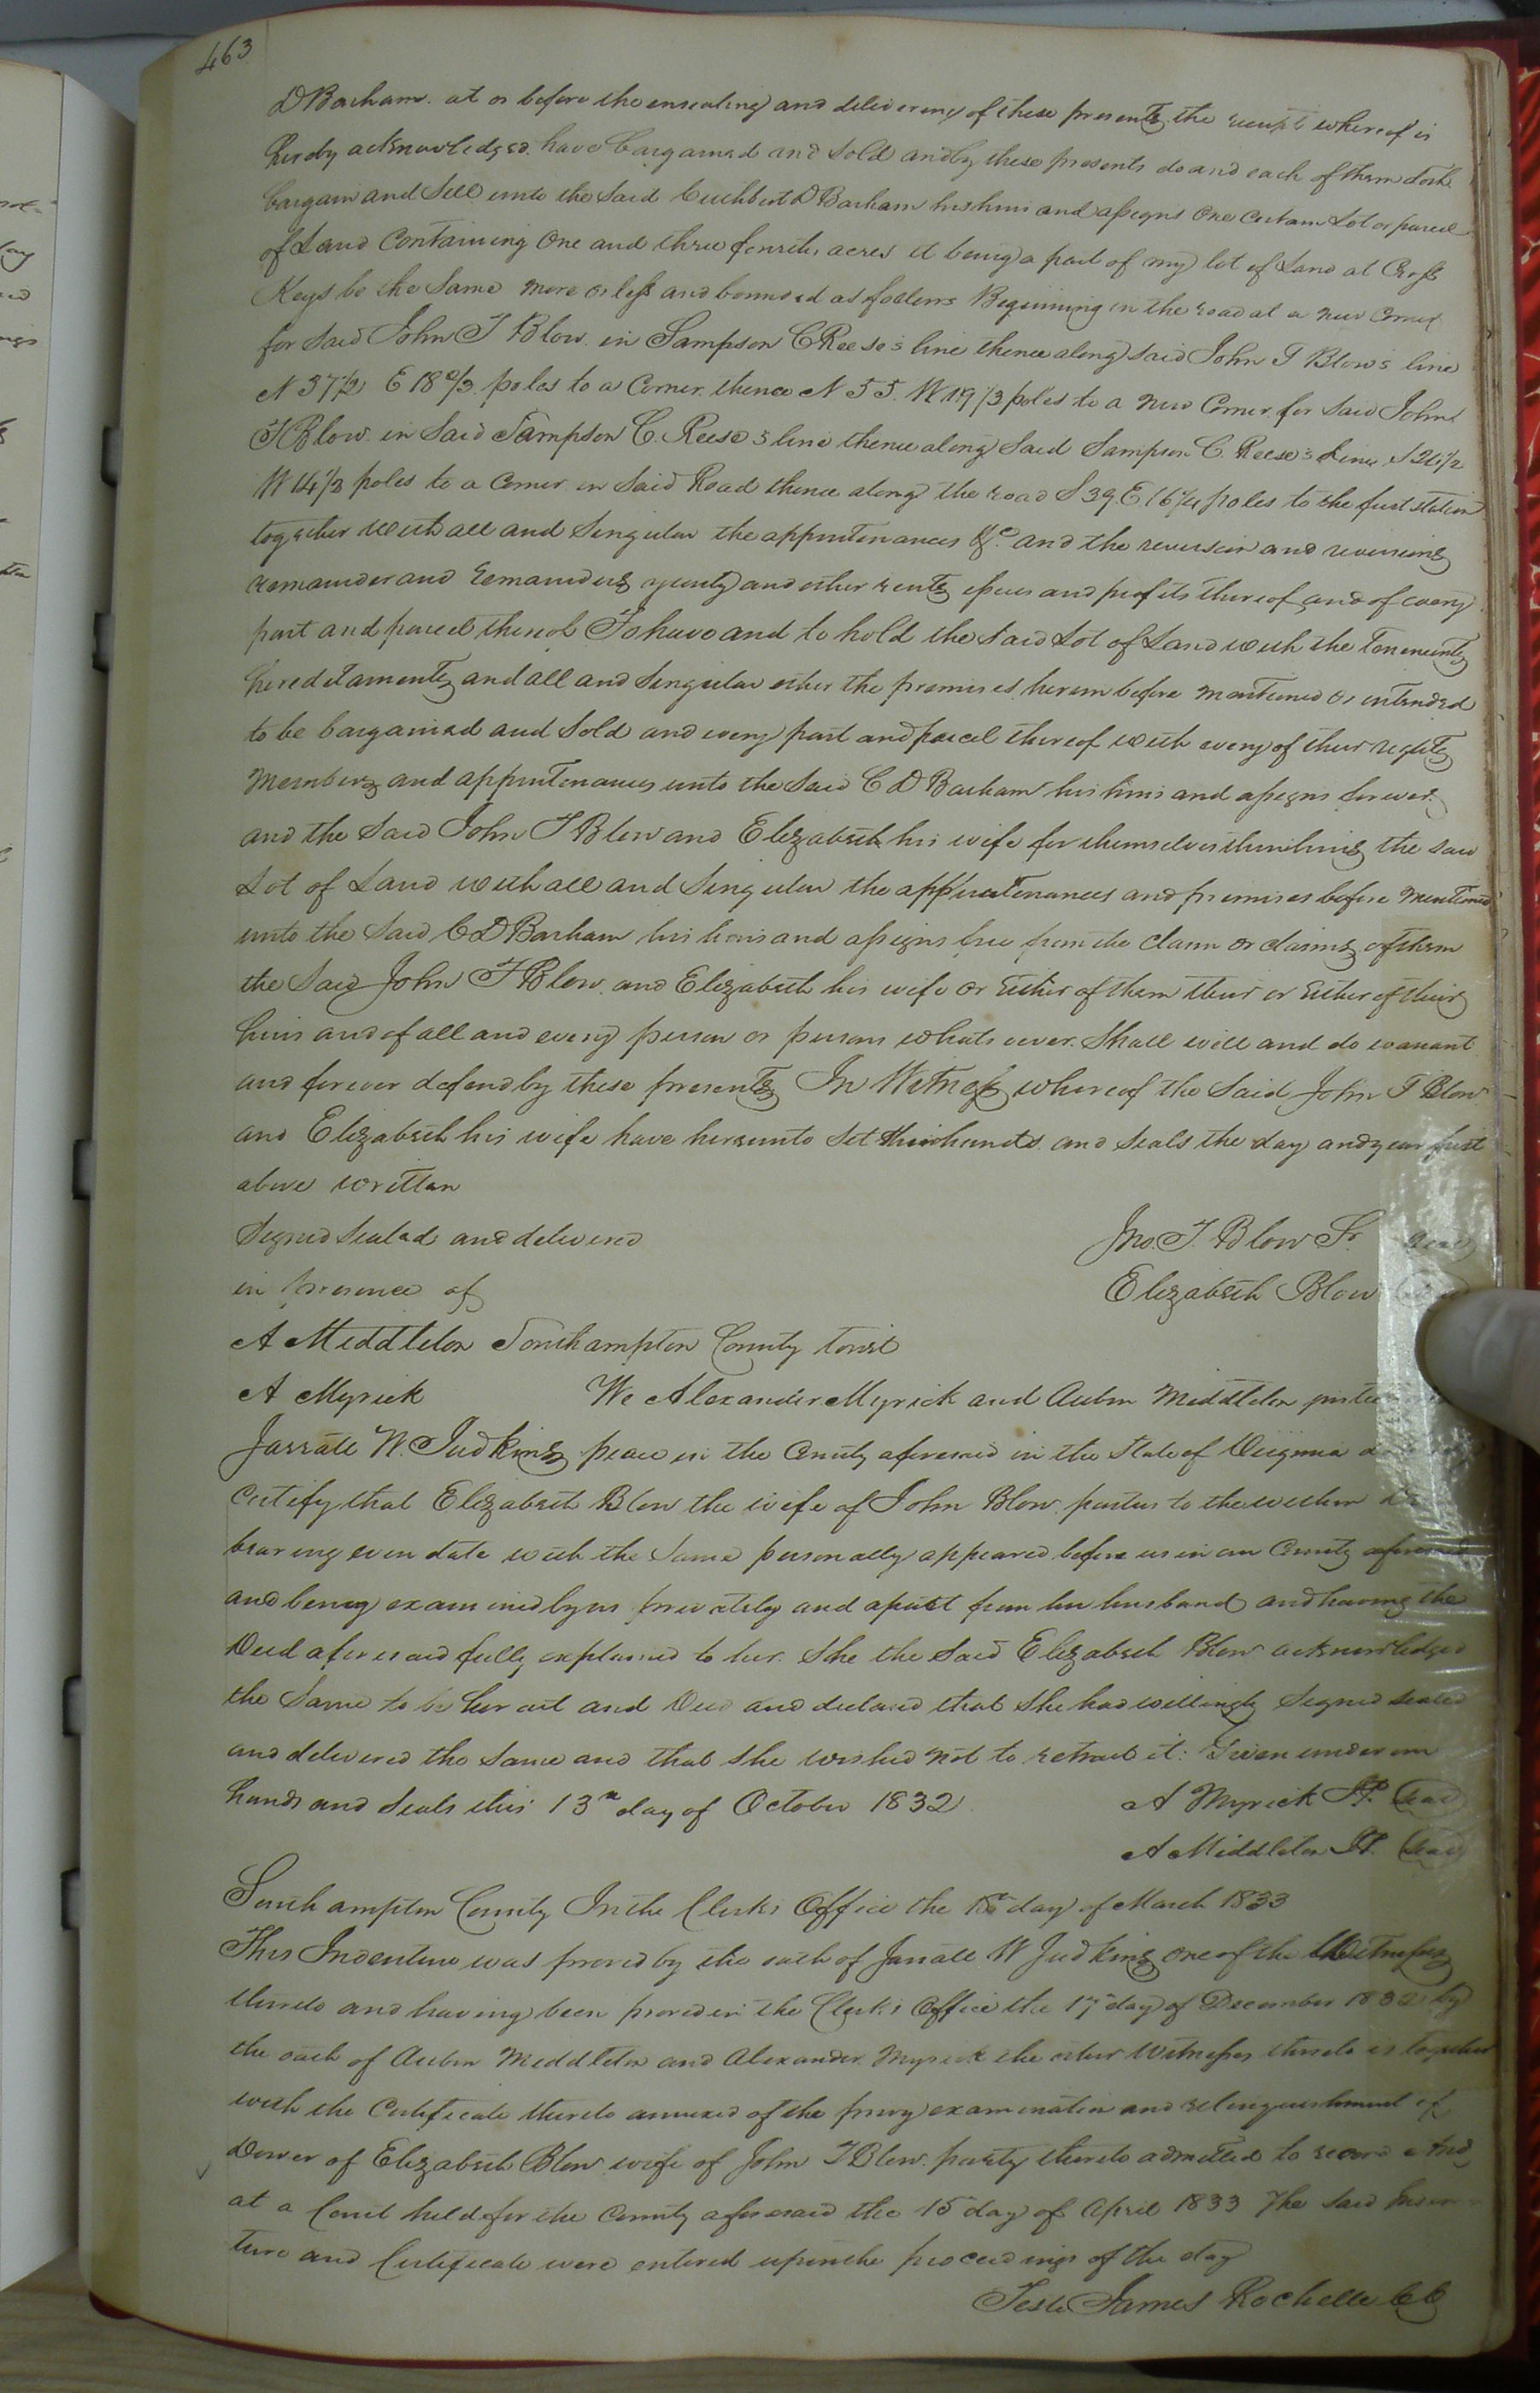 463
D Barham. at or before the ensealing and delivering of these presents the receipt whereof is
hereby acknowledged. have bargained and sold and by these presents do and each of them doth
bargain and Sell unto the said Cuthbert D Barham his heirs and assigns One certain Lot or parcel
of Land Containing One and three fourths acres it being a part of my lot of Land at Cross
Keys be the Same more or less and bounded as follows Beginning in the road at a new Corner
for said John T Blow in Sampson C Reese's line thence along said John T Blow's line
N 37 1/2 E 18 2/3 poles to a Corner. thence N 55. W 19 1/3 poles to a new Corner for said John
T Blow in said Sampson C. Reese's line thence along said Sampson C. Reese's Line S 26 1/2
W 14 1/3 poles to a Corner in said Road thence along the road S 39 E 16 1/4 poles to the first station
together with all and Singular the appurtenances &c. and the reversion and reversions
remainder and remainders yearly and other rents issues and profits thereof and of every
part and parcel thereof To have and to hold the said Lot of Land with the tenements
hereditaments and all and Singular other the premises herein before mentioned or intended
to be bargained and Sold and every part and parcel thereof with every of their rights
Members and appurtenances unto the said C D Barham his heirs and assigns forever.
and the said John T Blow and Elizabeth his wife for themselves their heirs the said
Lot of Land with all and Singular the appurtenances and premises before mentioned
unto the said C D Barham his heirs and assigns free from the claim or claims of them
the said John T Blow. and Elizabeth his wife or Either of them their or Either of their
heirs and of all and every person or persons whatsoever. Shall will and do warrant
and forever defend by these presents In Witness whereof the said John T Blow
and Elizabeth his wife have hereunto set their hands and seals the day and year first
above written
Signed Sealed and delivered Jno. T. Blow Sr. Seal
in presence of Elizabeth Blow
A Middleton Southampton County towit
A Myrick We Alexander Myrick and Aubin Middleton
Jarratt W. Judkins peace in the County aforesaid in the State of Virginia do
Certify that Elizabeth Blow the wife of John Blow. parties to the within
bearing even date with the Same personally appeared before us in our County aforesaid
and being examined by us privately and apart from her husband and having the
Deed aforesaid fully explained to her. She the said Elizabeth Blow acknowledged
the Same to be her act and Deed and declared that She had willingly Signed sealed
and delivered the Same and that She wished not to retract it: Given under our
hands and Seals this 13th day of October 1832 A Myrick JP. Seal
A Middleton JP. Seal
Southampton County In the Clerks Office the day of March 1833
This Indenture was proved by the oath of Jarratt W Judkins one of the Witnesses
thereto and having been proved in the Clerks Office the 17 day of December 1832 by
the oath of Aubin Middleton and Alexander Myrick the other Witnesses thereto is together
with the Certificate thereto annexed of the privy examination and relinquishment of
Dower of Elizabeth Blow wife of John T Blow. party thereto admitted to record And
at a Court held for the County aforesaid the 15 day of April 1833 The said Inden
ture and Certificate were entered upon the proceedings of the day
Teste James Rochelle CC